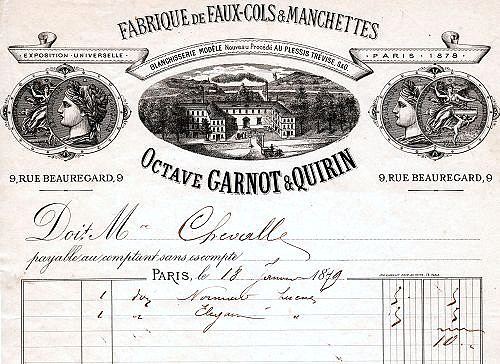 FABRIQUE DE FAUX-COLS & MANCHETTES
BLANCHISSERIE MODÈLE Nouveau Procédé AU PLESSIS TRÉVISE S&O.
EXPOSITION · UNIVERSELLE
· PARIS · 1878 ·
OCTAVE GARNOT & QUIRIN
9, RUE BEAUREGARD, 9
9, RUE BEAUREGARD, 9
Doit M Chevalle
payable au comptant sans escompte
PARIS, le 13 Janvier 1879
1 dz 5 5
1 " " 5 5
10 "